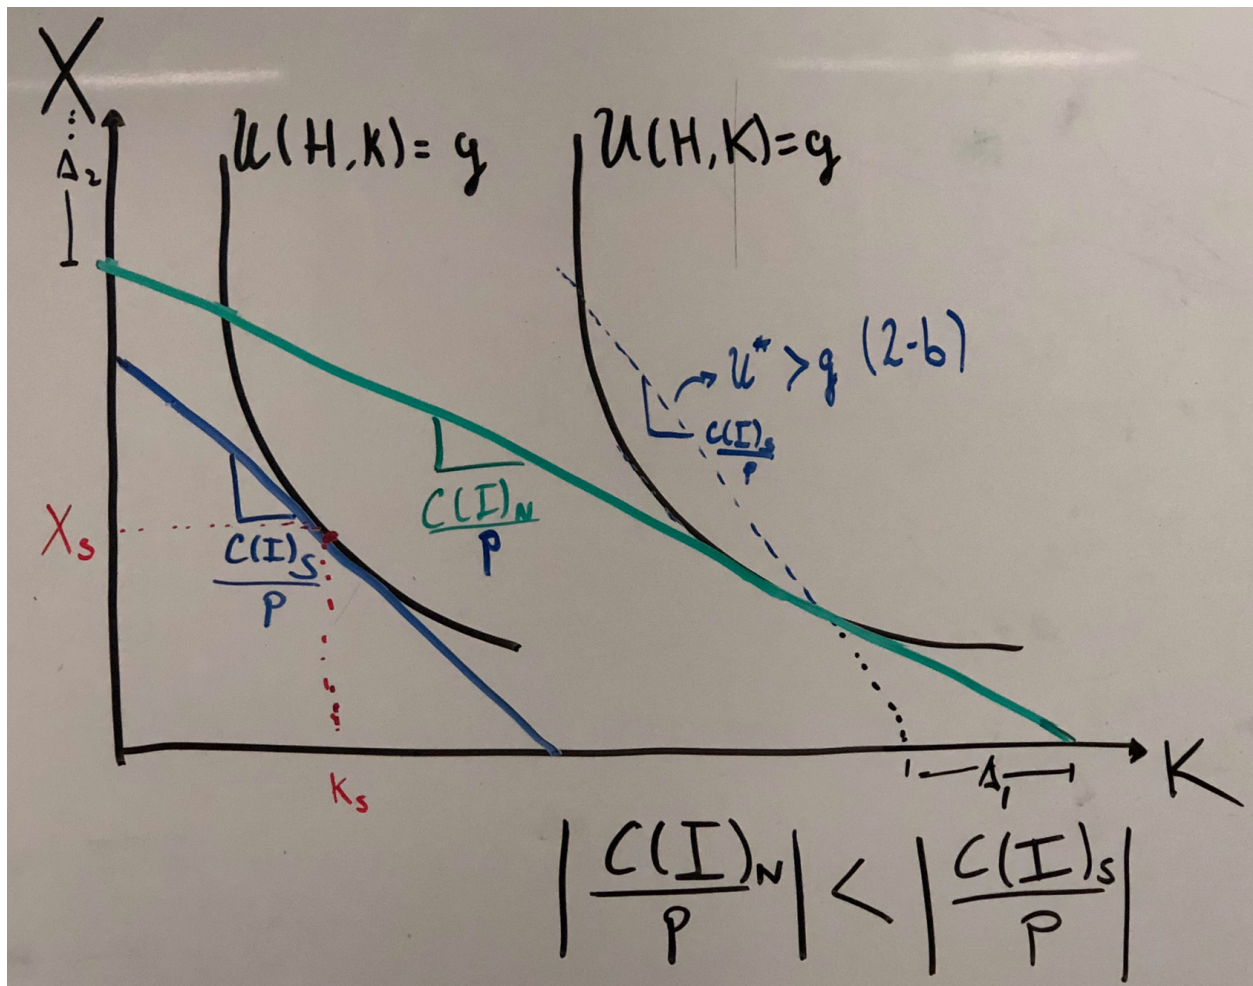 X
Δ₂
U(H,K)= g
U(H,K)=g
U* > g (2-b)
C(I)s
P
C(I)N
P
Xs
C(I)S
P
Ks
Δ₁
K
|C(I)N| < |C(I)s|
P P